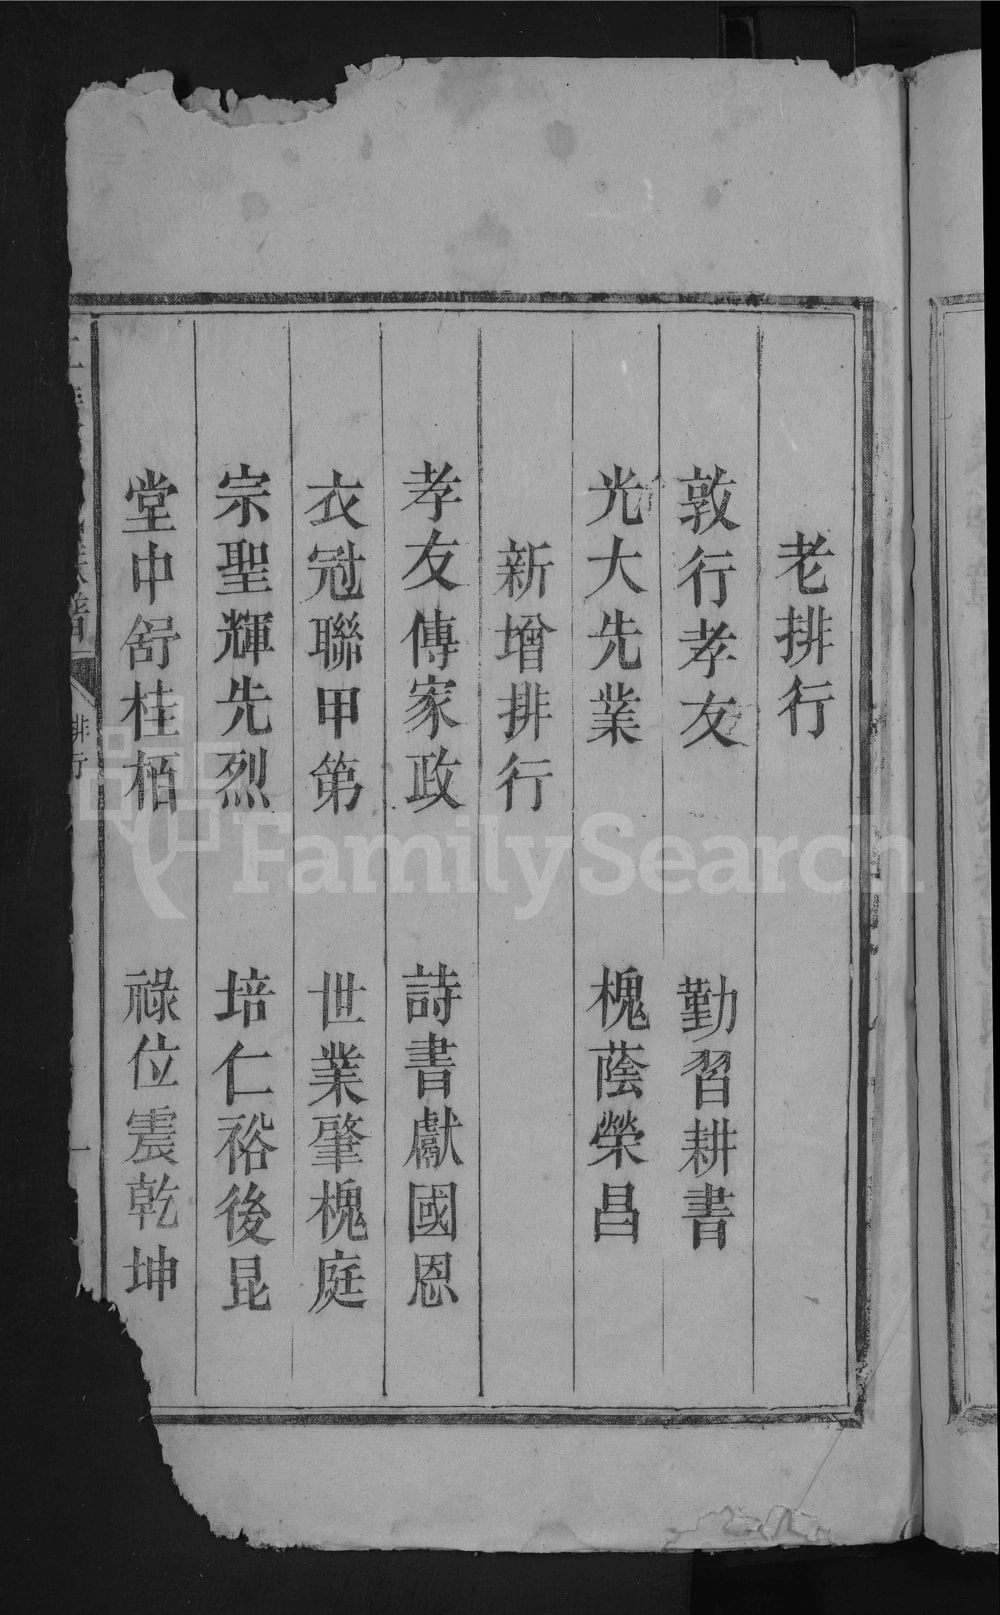 老排行
敦行孝友 勤習耕書
光大先業 槐蔭榮昌
新增排行
孝友傳家政 詩書獻國恩
衣冠聯甲第 世業肇槐庭
宗聖輝先烈 培仁裕後昆
堂中舒桂栢 祿位震乾坤
排行
FamilySearch